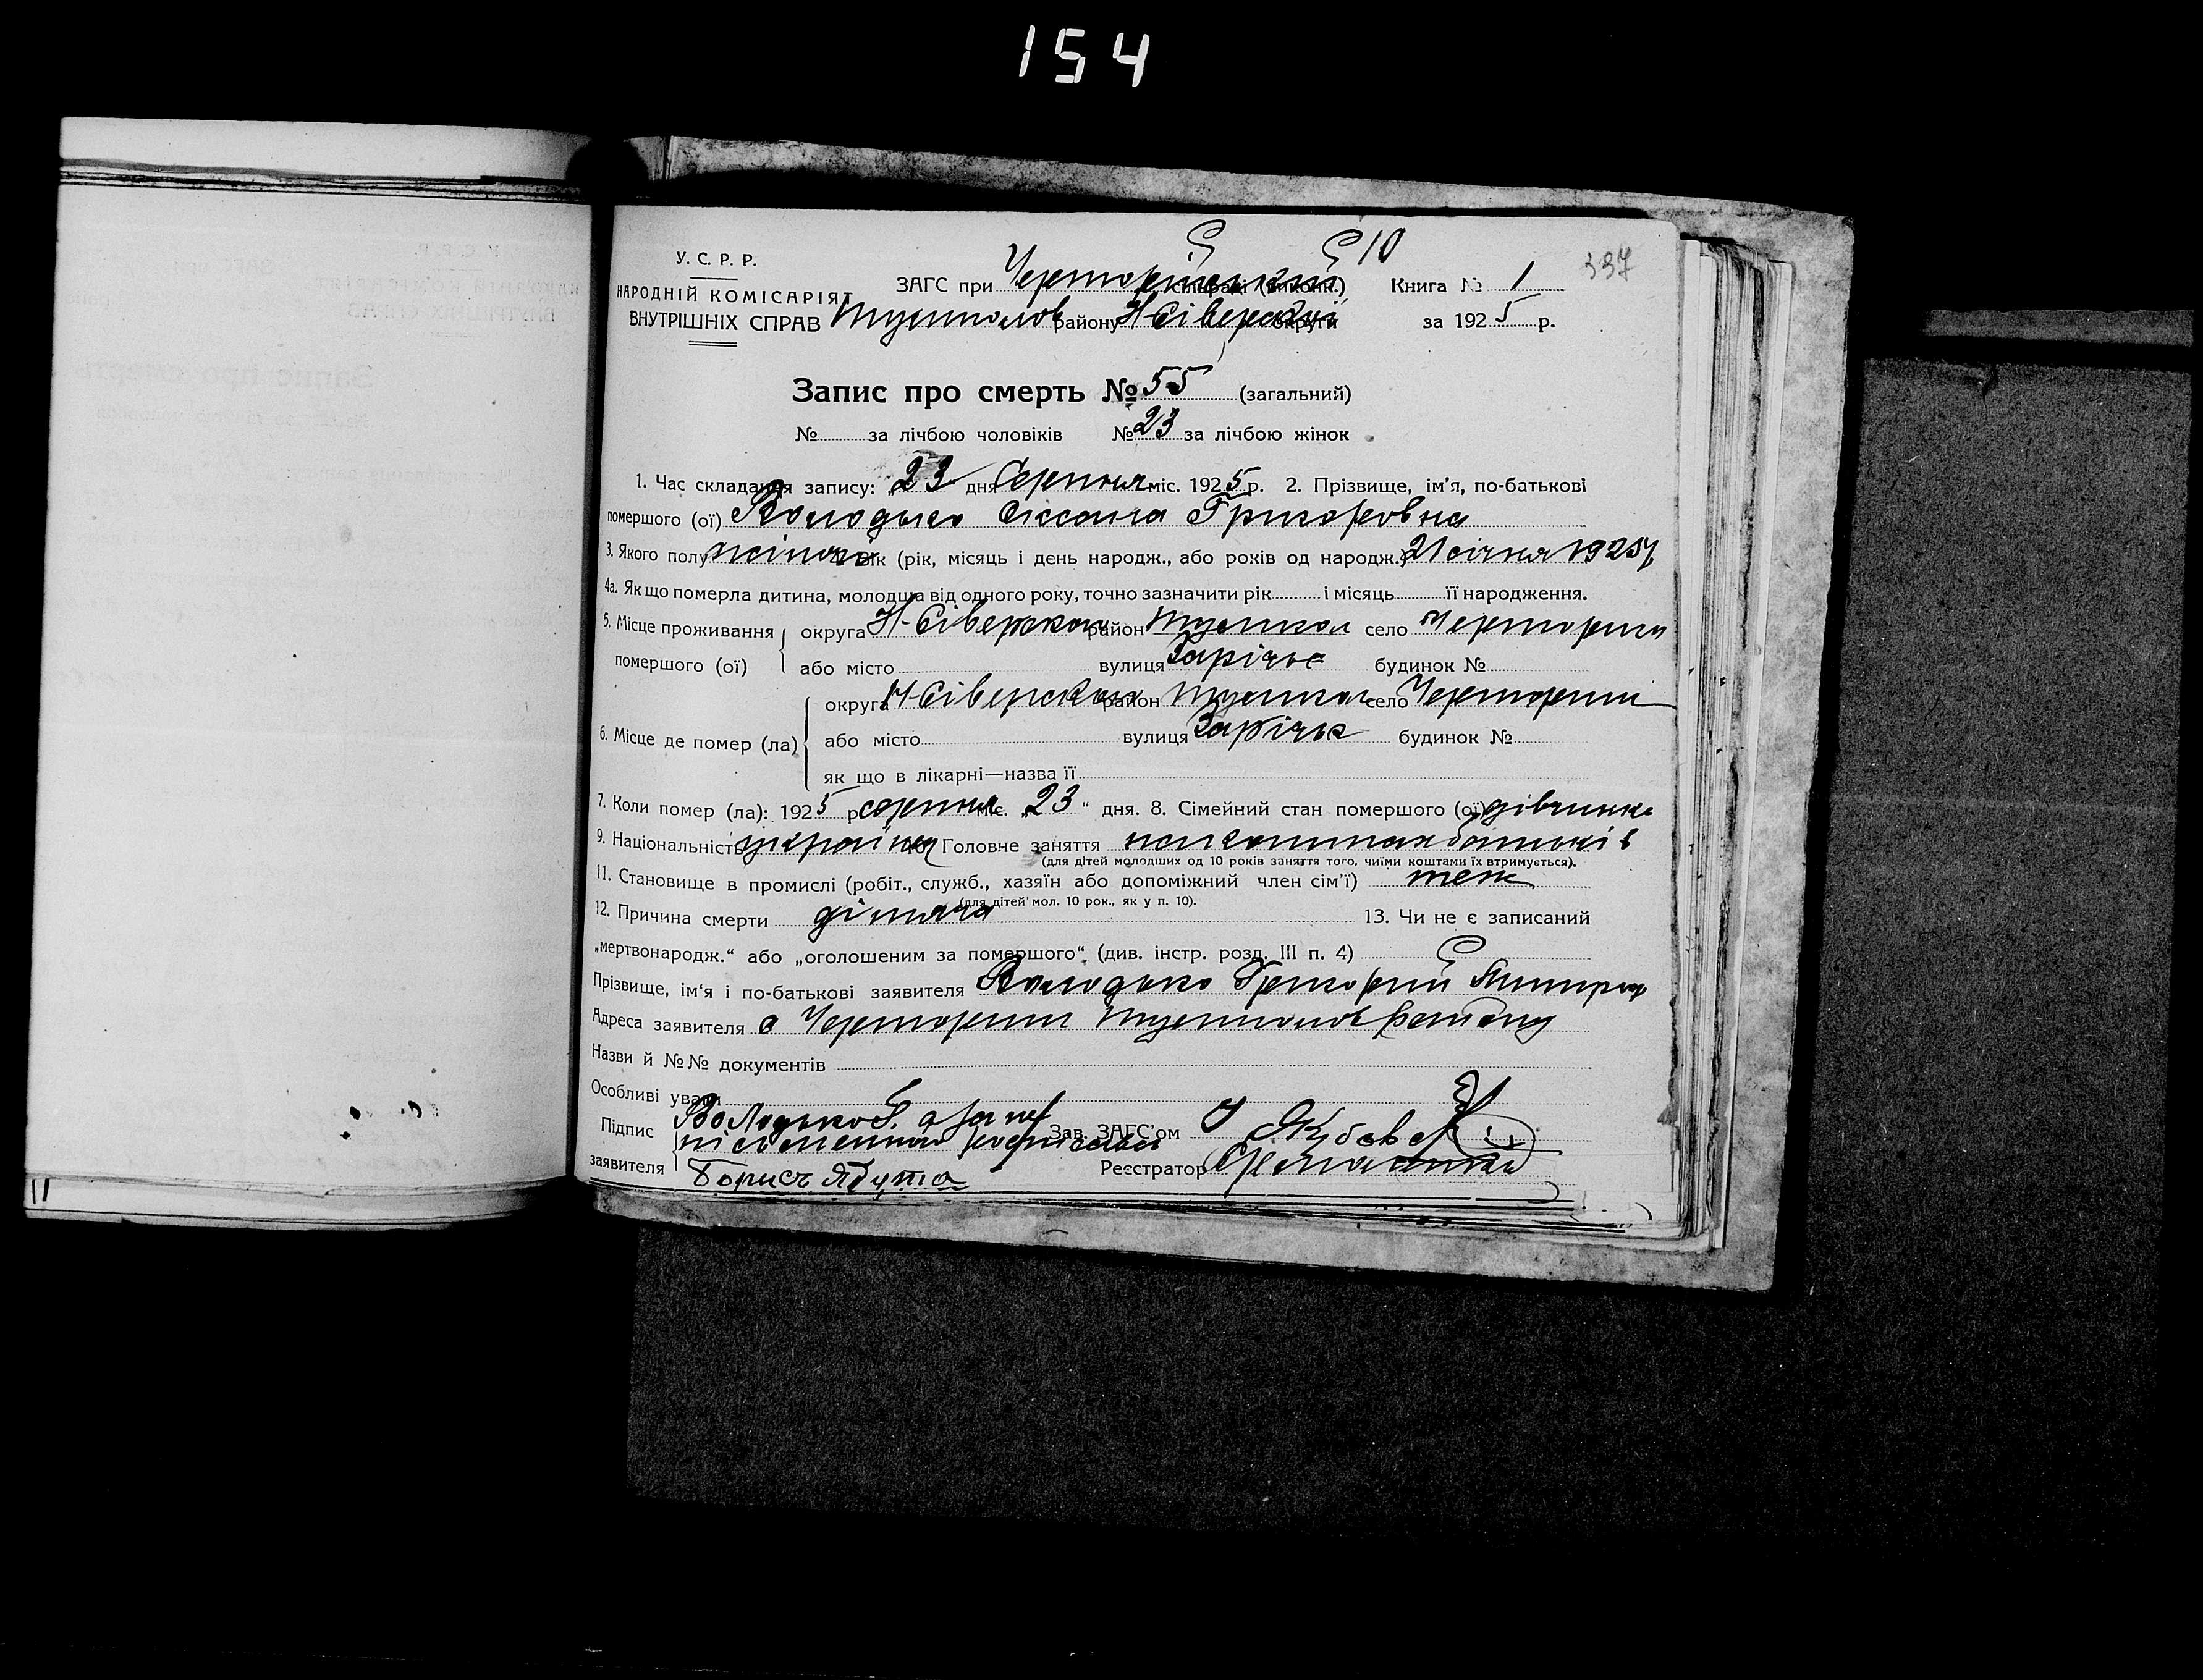 154
У. С. Р. Р.
НАРОДНІЙ КОМІСАРІЯТ
ВНУТРІШНІХ СПРАВ
10
337
ЗАГС при Чорторийський (виконк.) Книга № 1
району Н Сіверської округи за 1925 р.
Запис про смерть № 55 (загальний)
№ за лічбою чоловіків № 23 за лічбою жінок
1. Час складання запису: „23“ дня Серпня міс. 1925 р. 2. Прізвище, ім'я, по-батькові
помершого (ої) Володько Оксана Григоровна
3. Якого полу жіноч вік (рік, місяць і день народж., або років од народж.) 21 січня 1925 р
4а. Як що померла дитина, молодша від одного року, точно зазначити рік і місяць її народження.
5. Місце проживання помершого (ої) округа Н-Сіверская район село Черториги
або місто вулиця Зарічье будинок №
6. Місце де помер (ла) округа Н-Сіверская район село Черториги
або місто вулиця Зарічье будинок №
як що в лікарні—назва її
7. Коли помер (ла): 1925 р серпня міс. „23“ дня. 8. Сімейний стан помершого (ої) дівчинка
9. Національність україн 10. Головне заняття на коштах батьків
(для дітей молодших од 10 років заняття того, чиїми коштами їх втримується).
11. Становище в промислі (робіт., служб., хазяїн або допоміжний член сім'ї) теж
(для дітей мол. 10 рок., як у п. 10).
12. Причина смерти дітяча 13. Чи не є записаний
„мертвонародж.“ або „оголошеним за помершого“. (див. інстр. розд. III п. 4)
Прізвище, ім'я і по-батькові заявителя Володько Григорий
Адреса заявителя с Черториги
Назви й №№ документів
Особливі уваги
Підпис заявителя Володько Г. а за не
писменного росписався
Борисъ Ядута
Зав. ЗАГС'ом
Реєстратор